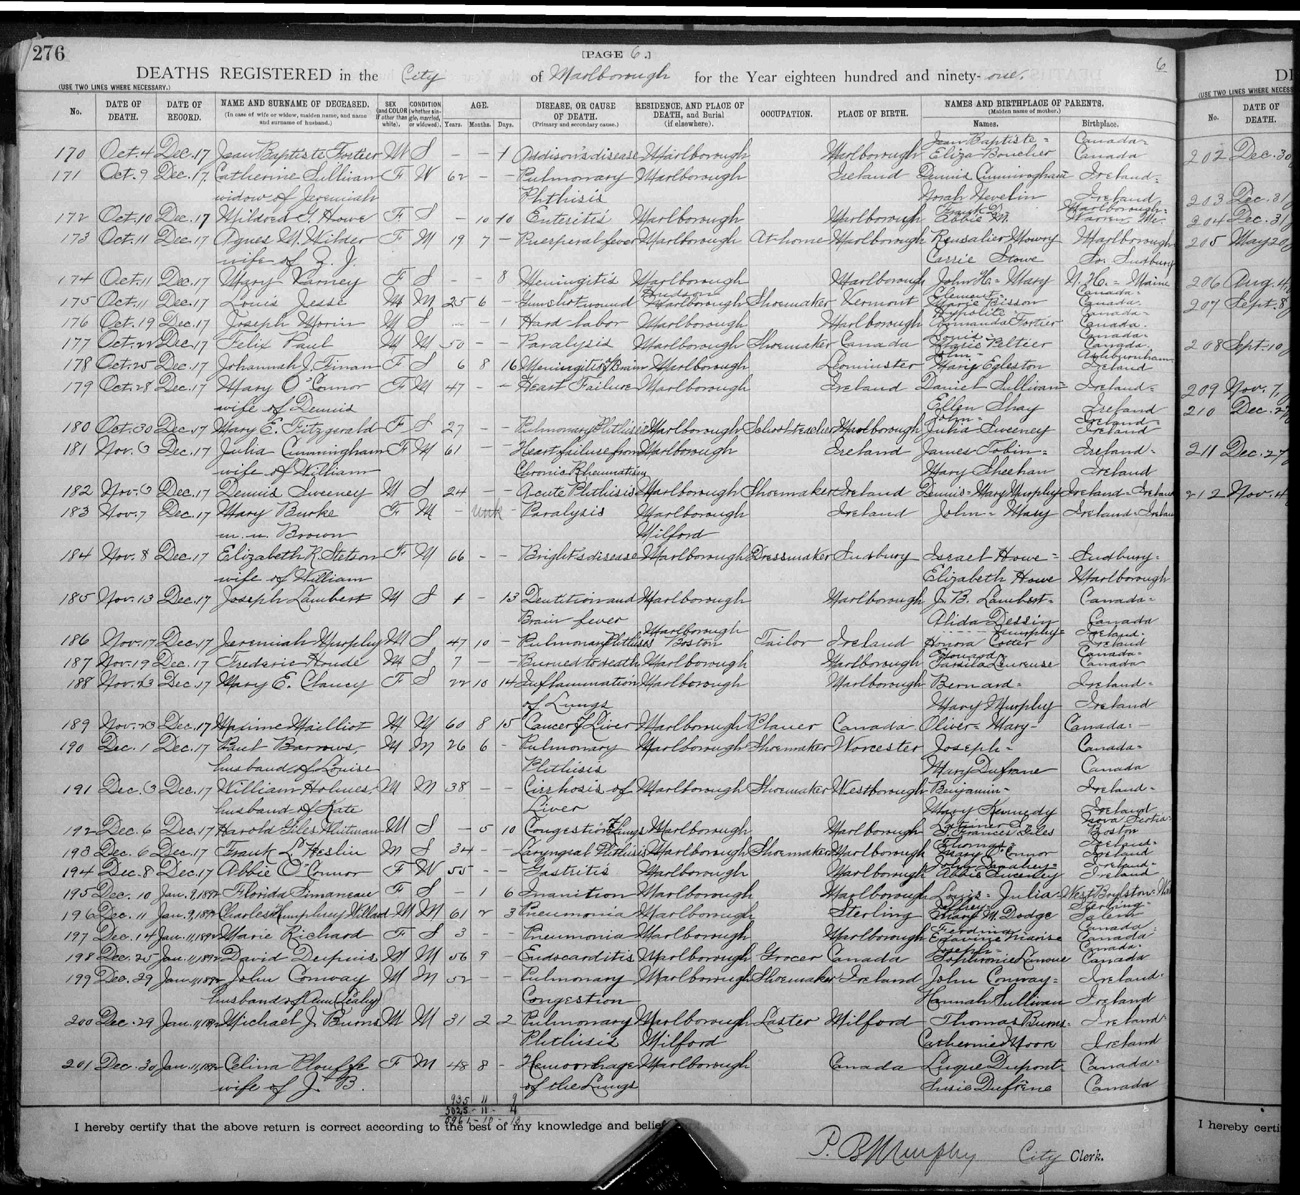 276
[PAGE 6.]
6
DEATHS REGISTERED in the City of Marlborough for the Year eighteen hundred and ninety-one.
(USE TWO LINES WHERE NECESSARY.)
No. DATE OF DEATH. DATE OF RECORD. NAME AND SURNAME OF DECEASED. (In case of wife or widow, maiden name, and name and surname of husband.) SEX (and COLOR if other than white). CONDITION (whether single, married, or widowed). AGE. Years. Months. Days. DISEASE, OR CAUSE OF DEATH. (Primary and secondary cause.) RESIDENCE, AND PLACE OF DEATH, and Burial (if elsewhere). OCCUPATION. PLACE OF BIRTH. NAMES AND BIRTHPLACE OF PARENTS. (Maiden name of mother.) Names. Birthplace.
Jean Baptiste - Canada-
170 Oct. 4 Dec. 17 Jean Baptiste Fortier M S - - 1 Addison's disease Marlborough Marlborough Eliza Boucher Canada
171 Oct. 9 Dec. 17 Catherine Sullivan F W 62 - - Pulmonary Marlborough Ireland Dennis Cunningham Ireland-
widow of Jeremiah Phthisis Norah Ireland
172 Oct. 10 Dec. 17 Mildred G. Howe F S - 10 10 Enteritis Marlborough Marlborough Abbie M. Warren, Me.
173 Oct. 11 Dec. 17 Agnes M. Wilder F M 19 7 - Puerperal fever Marlborough At home Marlborough Mowry Marlborough
wife of Z. J. Carrie Stowe So. Sudbury
174 Oct. 11 Dec. 17 Mary Varney F S - - 8 Meningitis Marlborough Marlborough John H. - Mary N. H. - Maine
Clement - Canada-
175 Oct. 11 Dec. 17 Louis Jesse M M 25 6 - Gunshot wound Marlborough Shoemaker Vermont Marie Bisson Canada-
Hypolite Canada-
176 Oct. 19 Dec. 17 Joseph Morin M S - - 1 Hard labor Marlborough Marlborough Amanda Fortier Canada-
Louis - Canada-
177 Oct. 22 Dec. 17 Felix Paul M M 50 - - Paralysis Marlborough Shoemaker Canada Peltier Canada-
John - Ashburnham-
178 Oct. 25 Dec. 17 Johannah J. Finan F S 6 8 16 Meningitis of Brain Marlborough Leominster Mary Egleston Ireland
179 Oct. 28 Dec. 17 Mary O'Connor F M 47 - - Heart Failure Marlborough Ireland Daniel Sullivan Ireland-
wife of Dennis Ellen Shay Ireland
John - Ireland-
180 Oct. 30 Dec. 17 Mary E. Fitzgerald F S 27 - - Pulmonary Phthisis Marlborough Schoolteacher Marlborough Julia Sweeney Ireland
181 Nov. 3 Dec. 17 Julia Cunningham F M 61 - - Heart failure from Marlborough Ireland James Tobin- Ireland-
wife of William Chronic Rheumatism Mary Sheehan Ireland
182 Nov. 3 Dec. 17 Dennis Sweeney M S 24 - - Acute Phthisis Marlborough Shoemaker Ireland Dennis - Mary Murphy Ireland - Ireland
183 Nov. 7 Dec. 17 Mary Burke F M - unk - Paralysis Marlborough Ireland John - Mary Ireland - Ireland
m. n. Brown Milford
184 Nov. 8 Dec. 17 Elizabeth K. Stetson F M 66 - - Bright's disease Marlborough Dressmaker Sudbury Israel Howe - Sudbury-
wife of William Elizabeth Howe Marlborough
185 Nov. 13 Dec. 17 Joseph Lambert M S 1 - 13 Dentition and Marlborough Marlborough J. B. Lambert- Canada-
Brain fever Alida Dessin Canada
Marlborough Murphy- Ireland-
186 Nov. 17 Dec. 17 Jeremiah Murphy M S 47 10 - Pulmonary Phthisis Boston Tailor Ireland Honora Cotter Ireland
Canada-
187 Nov. 19 Dec. 17 Frederic Houde M S 7 - - Burned to death Marlborough Marlborough Canada
188 Nov. 23 Dec. 17 Mary E. Clancy F S 22 10 14 Inflammation Marlborough Marlborough Bernard- Ireland-
of Lungs Mary Murphy Ireland
189 Nov. 23 Dec. 17 Maxime Mailliot M M 60 8 15 Cancer of Liver Marlborough Canada Oliver - Mary- Canada-
190 Dec. 1 Dec. 17 Barrows, M M 26 6 - Pulmonary Marlborough Shoemaker Worcester Joseph- Canada-
husband of Louise Phthisis Mary Dufrane Canada
191 Dec. 3 Dec. 17 William Holmes M M 38 - - Cirrhosis of Marlborough Shoemaker Westborough Benjamin- Ireland-
husband of Kate Liver Mary Kennedy Ireland
Nova Scotia-
192 Dec. 6 Dec. 17 Harold Giles Whitman M S - 5 10 Congestion of Lungs Marlborough Marlborough S. Frances Giles Boston
Thomas - Ireland-
193 Dec. 6 Dec. 17 Frank L. Heslin M S 34 - - Laryngeal Phthisis Marlborough Shoemaker Marlborough Mary Connor Ireland
Ireland-
194 Dec. 8 Dec. 17 Abbie O'Connor F W 55 - - Gastritis Marlborough Ireland
195 Dec. 10 Jan. 9, 1892 Florida Simoneau F S - 1 6 Inanition Marlborough Marlborough Louis - Julia West Boylston
Sterling-
196 Dec. 11 Jan. 9, 1892 Charles Humphrey Willard M M 61 2 3 Pneumonia Marlborough Sterling Mary M. Dodge Salem
Canada-
197 Dec. 14 Jan. 11, 1892 Marie Richard F S 3 - - Pneumonia Marlborough Marlborough Canada-
Joseph Canada-
198 Dec. 25 Jan. 11, 1892 David Dupuis M M 56 9 - Endocarditis Marlborough Grocer Canada Canada
199 Dec. 29 Jan. 11, 1892 John Conway M M 52 - - Pulmonary Marlborough Shoemaker Ireland John Conway- Ireland-
husband of (Ann Leahy) Congestion Hannah Sullivan Ireland
200 Dec. 29 Jan. 11, 1892 Michael J. Burns M M 31 2 2 Pulmonary Marlborough Laster Milford Thomas Burns- Ireland-
Phthisis Milford Catherine Moore Ireland
201 Dec. 30 Jan. 11, 1892 Celina Plouffe F M 48 8 - Hemorrhage Marlborough Canada Luque Dupont- Canada-
wife of J. B. of the Lungs Susie Dufrine Canada
935 11 9
5025 - 11 - 4
I hereby certify that the above return is correct according to the best of my knowledge and belief
P. B. Murphy City Clerk.
(USE TWO LINES WHERE NECESS
No. DATE OF DEATH.
202 Dec. 30
203 Dec. 31
204 Dec. 31
205 May 20
206 Aug. 4
207 Sept. 8
208 Sept. 10
209 Nov. 7
210 Dec. 2
211 Dec. 27
212 Nov. 4
I hereby certi